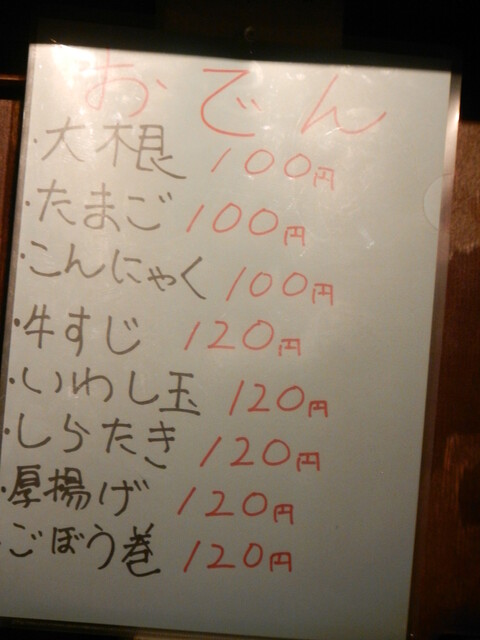 おでん
・大根 100円
・たまご 100円
・こんにゃく 100円
・牛すじ 120円
・いわし玉 120円
・しらたき 120円
・厚揚げ 120円
・ごぼう巻 120円